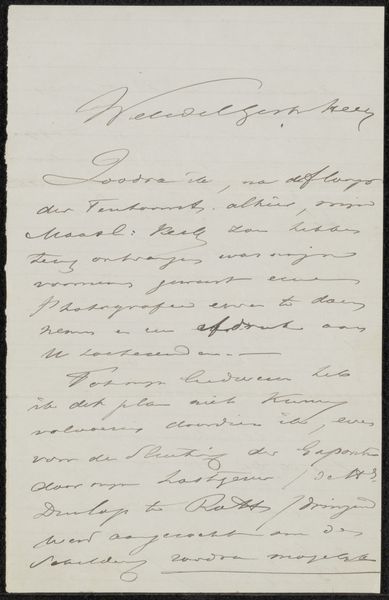 WelEdelGest. Heer
Zoodra ik, na afloop
der Tentoonst. alhier, mijn
Maasl: Kerk zou hebben
terug ontvangen was mijn
voornemen geweest eene
Photografie ervan te doen
nemen en een afdruk aan
U toetezenden.—
Tot mijn leedwezen heb
ik dit plan niet kunnen
volvoeren doordien ik, even
voor de Sluiting der Exposite
door mijn Lastgever (de Hr.
Dunlop te Rott.) dringend
werd aangezocht om de
Schilderij zoodra mogelijk